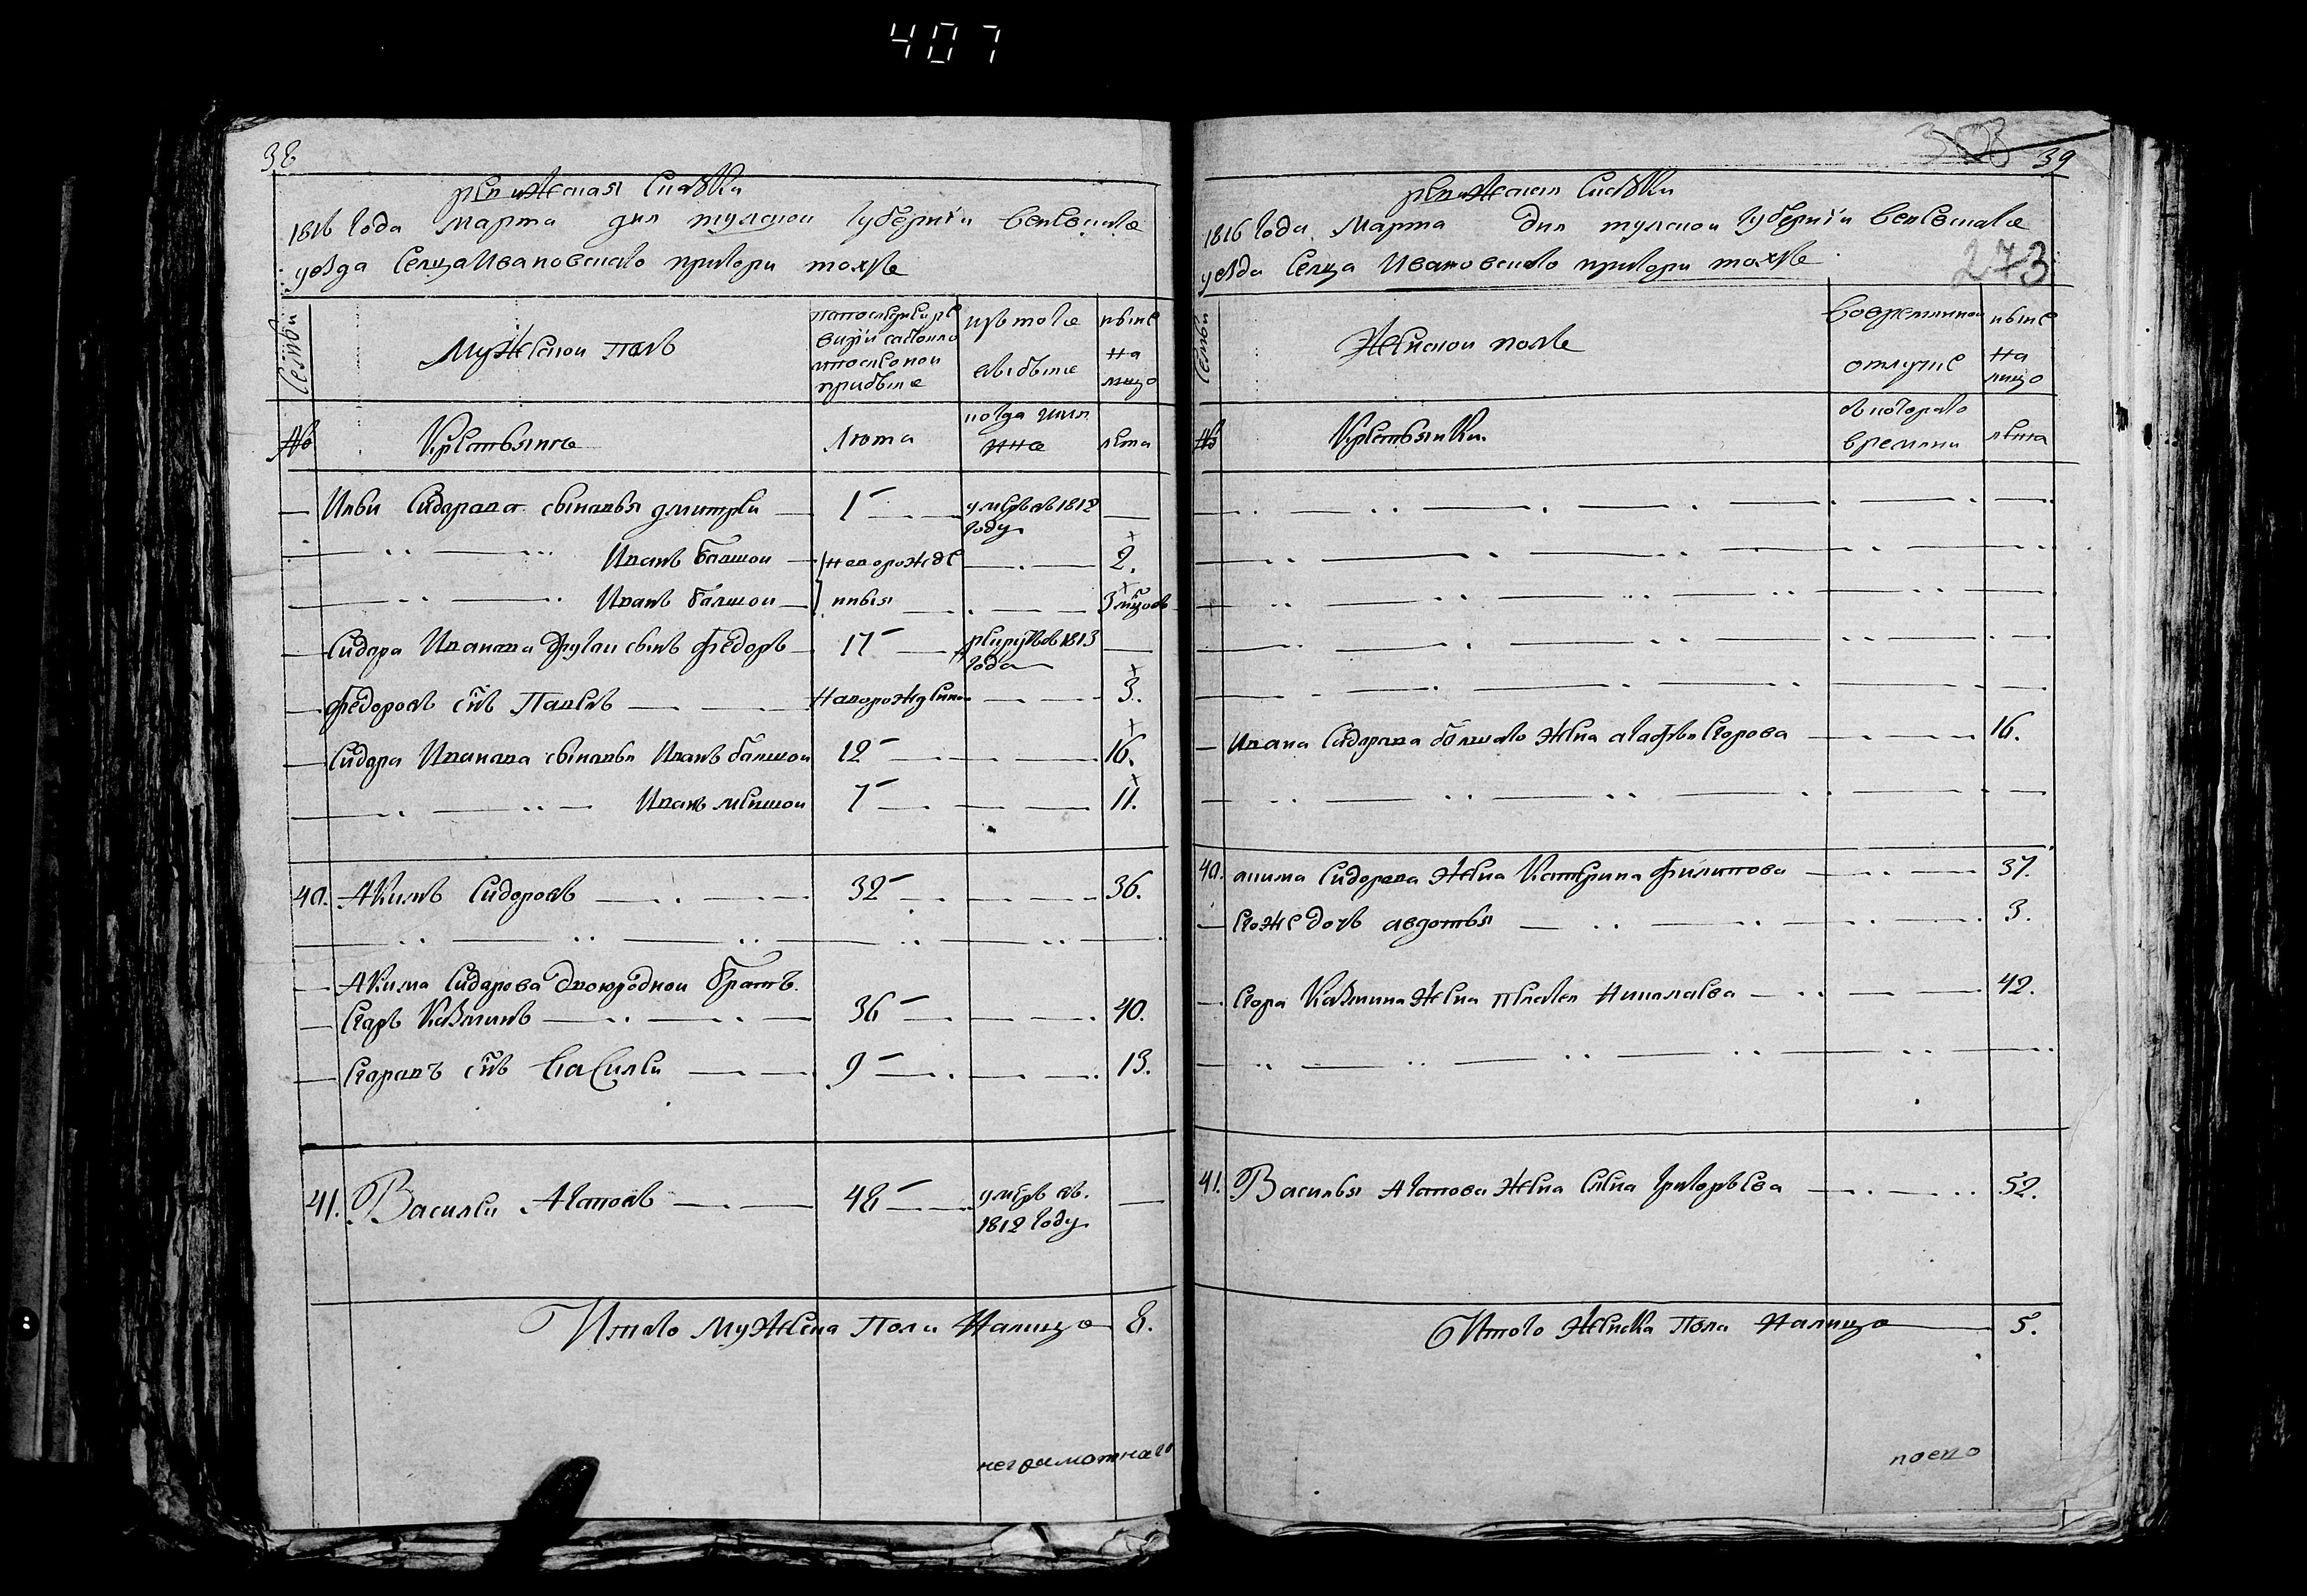 407
38
ревижская скаски
1816 года марта дня тулской губернiи веневскаго
уезда селца Ивановского пригори тожъ
Семьи
Мужеской полъ
попоследнеи ре
визiи состояло
ипослеонои
прибыло
изътого
выбыло
ныне
на
лицо
№
Крестьяне
Лета
когда имян
нно
лета
Илви Сидарава сыновья дмитреи — 1 — умеръ въ 1812
году
Иванъ балшои — новорожде 2.
Иванъ балшои — нныя 3 мцовъ
Сидора Иванава другои сынъ федоръ — 17 — рекрутъ въ 1813
года
федоровъ сынъ Павелъ — новорожденнои 3.
Сидора Иванава сыновья Иванъ балшои 12 — 16.
Иванъ меншои 7 — 11.
40. Акимъ Сидоровъ — 32 — 36.
Акима Сидарова двоюроднои братъ.
Егаръ Казминъ — 36 — 40.
Егаравъ сынъ Василеи — 9 — 13.
41. Василеи Агаповъ — 48 — умеръ въ.
1812 году
Итаго мужеска пола налицо 8.
неграмотнаго
39
273
ревижская скаски
1816 года. Марта дня тулскои губернiи веневскаго
уезда селца Ивановского пригори тожъ
Семьи
Женскои полъ
вовремяннои
отлучке
ныне
на
лицо
№
Крестьянки.
съкоторого
времяни
лета
Ивана Сидарава болшаго жена агафья Егорова — 16.
40. акима Сидорава жена Катерина филипова — 37.
Егоже дочь авдотья — 3.
Егора Казмина жена пелагея Николаева — 42.
41. Василья Агапова жена елена григорьева — 52.
Итого женска пола налицо 5.
поево